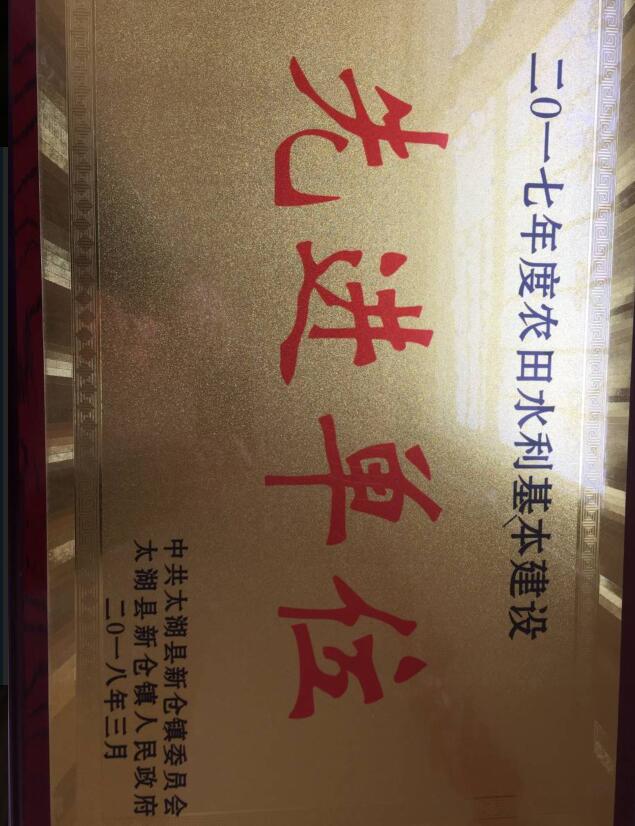 二〇一七年度农田水利基本建设
先进单位
中共太湖县新仓镇委员会
太湖县新仓镇人民政府
二〇一八年三月